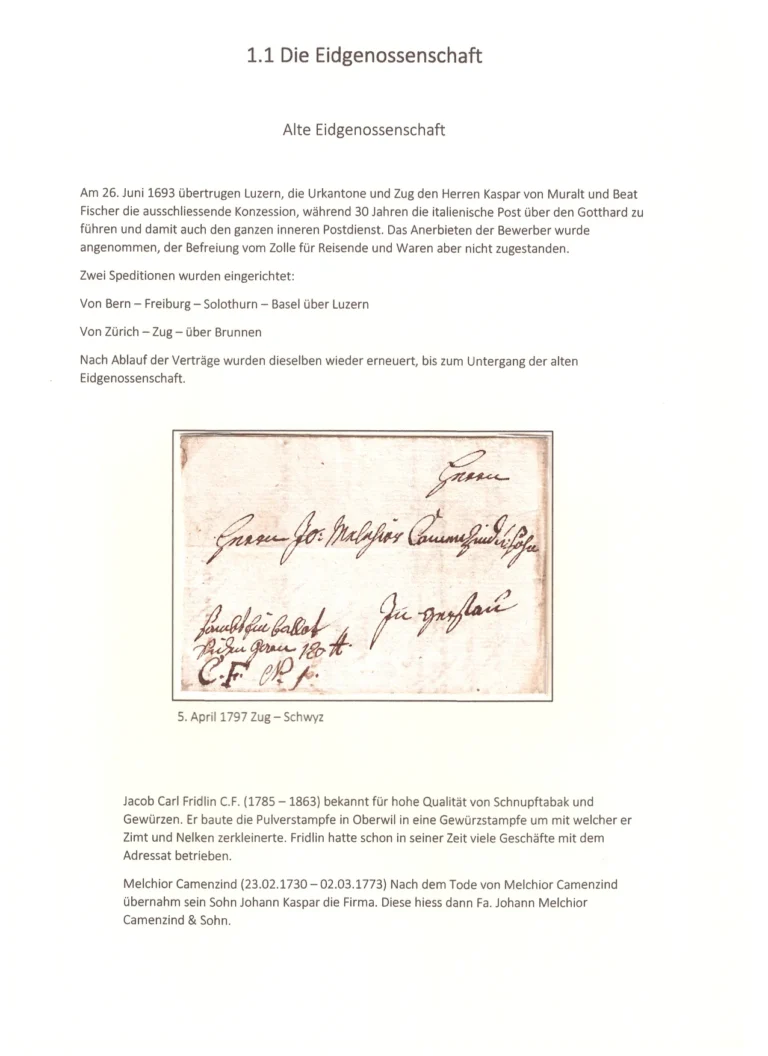 1.1 Die Eidgenossenschaft
Alte Eidgenossenschaft
Am 26. Juni 1693 übertrugen Luzern, die Urkantone und Zug den Herren Kaspar von Muralt und Beat
Fischer die ausschliessende Konzession, während 30 Jahren die italienische Post über den Gotthard zu
führen und damit auch den ganzen inneren Postdienst. Das Anerbieten der Bewerber wurde
angenommen, der Befreiung vom Zolle für Reisende und Waren aber nicht zugestanden.
Zwei Speditionen wurden eingerichtet:
Von Bern – Freiburg – Solothurn – Basel über Luzern
Von Zürich – Zug – über Brunnen
Nach Ablauf der Verträge wurden dieselben wieder erneuert, bis zum Untergang der alten
Eidgenossenschaft.
Herrn
Herrn Jo: Melchior
In Gersau
C.F. N
5. April 1797 Zug – Schwyz
Jacob Carl Fridlin C.F. (1785 – 1863) bekannt für hohe Qualität von Schnupftabak und
Gewürzen. Er baute die Pulverstampfe in Oberwil in eine Gewürzstampfe um mit welcher er
Zimt und Nelken zerkleinerte. Fridlin hatte schon in seiner Zeit viele Geschäfte mit dem
Adressat betrieben.
Melchior Camenzind (23.02.1730 – 02.03.1773) Nach dem Tode von Melchior Camenzind
übernahm sein Sohn Johann Kaspar die Firma. Diese hiess dann Fa. Johann Melchior
Camenzind & Sohn.